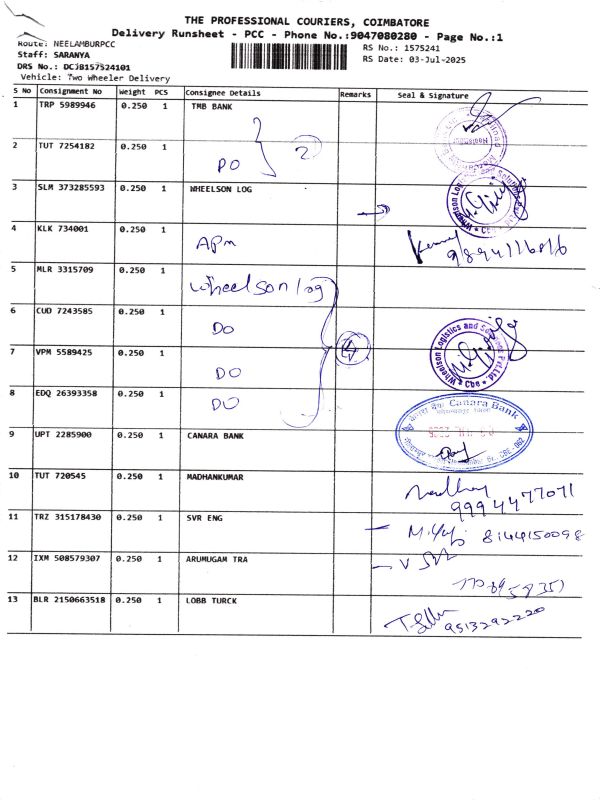 THE PROFESSIONAL COURIERS, COIMBATORE
Delivery Runsheet - PCC - Phone No.:9047080280 - Page No.:1
Route: NEELAMBURPCC
RS No.: 1575241
Staff: SARANYA
RS Date: 03-Jul-2025
DRS No.: DCJB157524101
Vehicle: Two Wheeler Delivery
S No Consignment No Weight PCS Consignee Details Remarks Seal & Signature
1 TRP 5989946 0.250 1 TMB BANK
2 TUT 7254182 0.250 1 DO 2
3 SLM 373285593 0.250 1 WHEELSON LOG
4 KLK 734001 0.250 1 APM
5 MLR 3315709 0.250 1 Wheelson log
6 CUD 7243585 0.250 1 DO
7 VPM 5589425 0.250 1 DO
Wheelson Logistics and
Cbe
8 EDQ 26393358 0.250 1 DO
Canara Bank
9 UPT 2285900 0.250 1 CANARA BANK
10 TUT 720545 0.250 1 MADHANKUMAR
9994477071
11 TRZ 315178430 0.250 1 SVR ENG
8144150098
12 IXM 508579307 0.250 1 ARUMUGAM TRA
13 BLR 2150663518 0.250 1 LOBB TURCK
9513292220